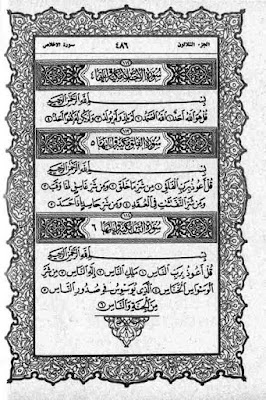 الجزء الثلاثون ٤٨٦ سورة الإخلاص
سورة الإخلاص مكية وآياتها ٤
بسم الله الرحمن الرحيم
قُلْ هُوَ اللَّهُ أَحَدٌ ۝١ اللَّهُ الصَّمَدُ ۝٢ لَمْ يَلِدْ وَلَمْ يُولَدْ ۝٣ وَلَمْ يَكُن لَّهُ كُفُوًا أَحَدٌ ۝٤
سورة الفلق مكية وآياتها ٥
بسم الله الرحمن الرحيم
قُلْ أَعُوذُ بِرَبِّ الْفَلَقِ ۝١ مِن شَرِّ مَا خَلَقَ ۝٢ وَمِن شَرِّ غَاسِقٍ إِذَا وَقَبَ ۝٣
وَمِن شَرِّ النَّفَّاثَاتِ فِي الْعُقَدِ ۝٤ وَمِن شَرِّ حَاسِدٍ إِذَا حَسَدَ ۝٥
سورة الناس مكية وآياتها ٦
بسم الله الرحمن الرحيم
قُلْ أَعُوذُ بِرَبِّ النَّاسِ ۝١ مَلِكِ النَّاسِ ۝٢ إِلَٰهِ النَّاسِ ۝٣ مِن شَرِّ
الْوَسْوَاسِ الْخَنَّاسِ ۝٤ الَّذِي يُوَسْوِسُ فِي صُدُورِ النَّاسِ ۝٥
مِنَ الْجِنَّةِ وَالنَّاسِ ۝٦